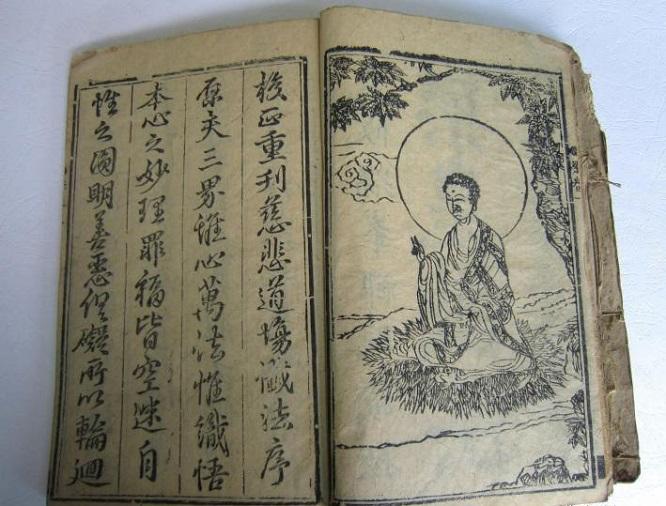 校正重刊慈悲道場懺法序
原夫三界惟心萬法惟識悟
本心之妙理罪福皆空迷自
性之圓明善惡俱礙所以輪迴